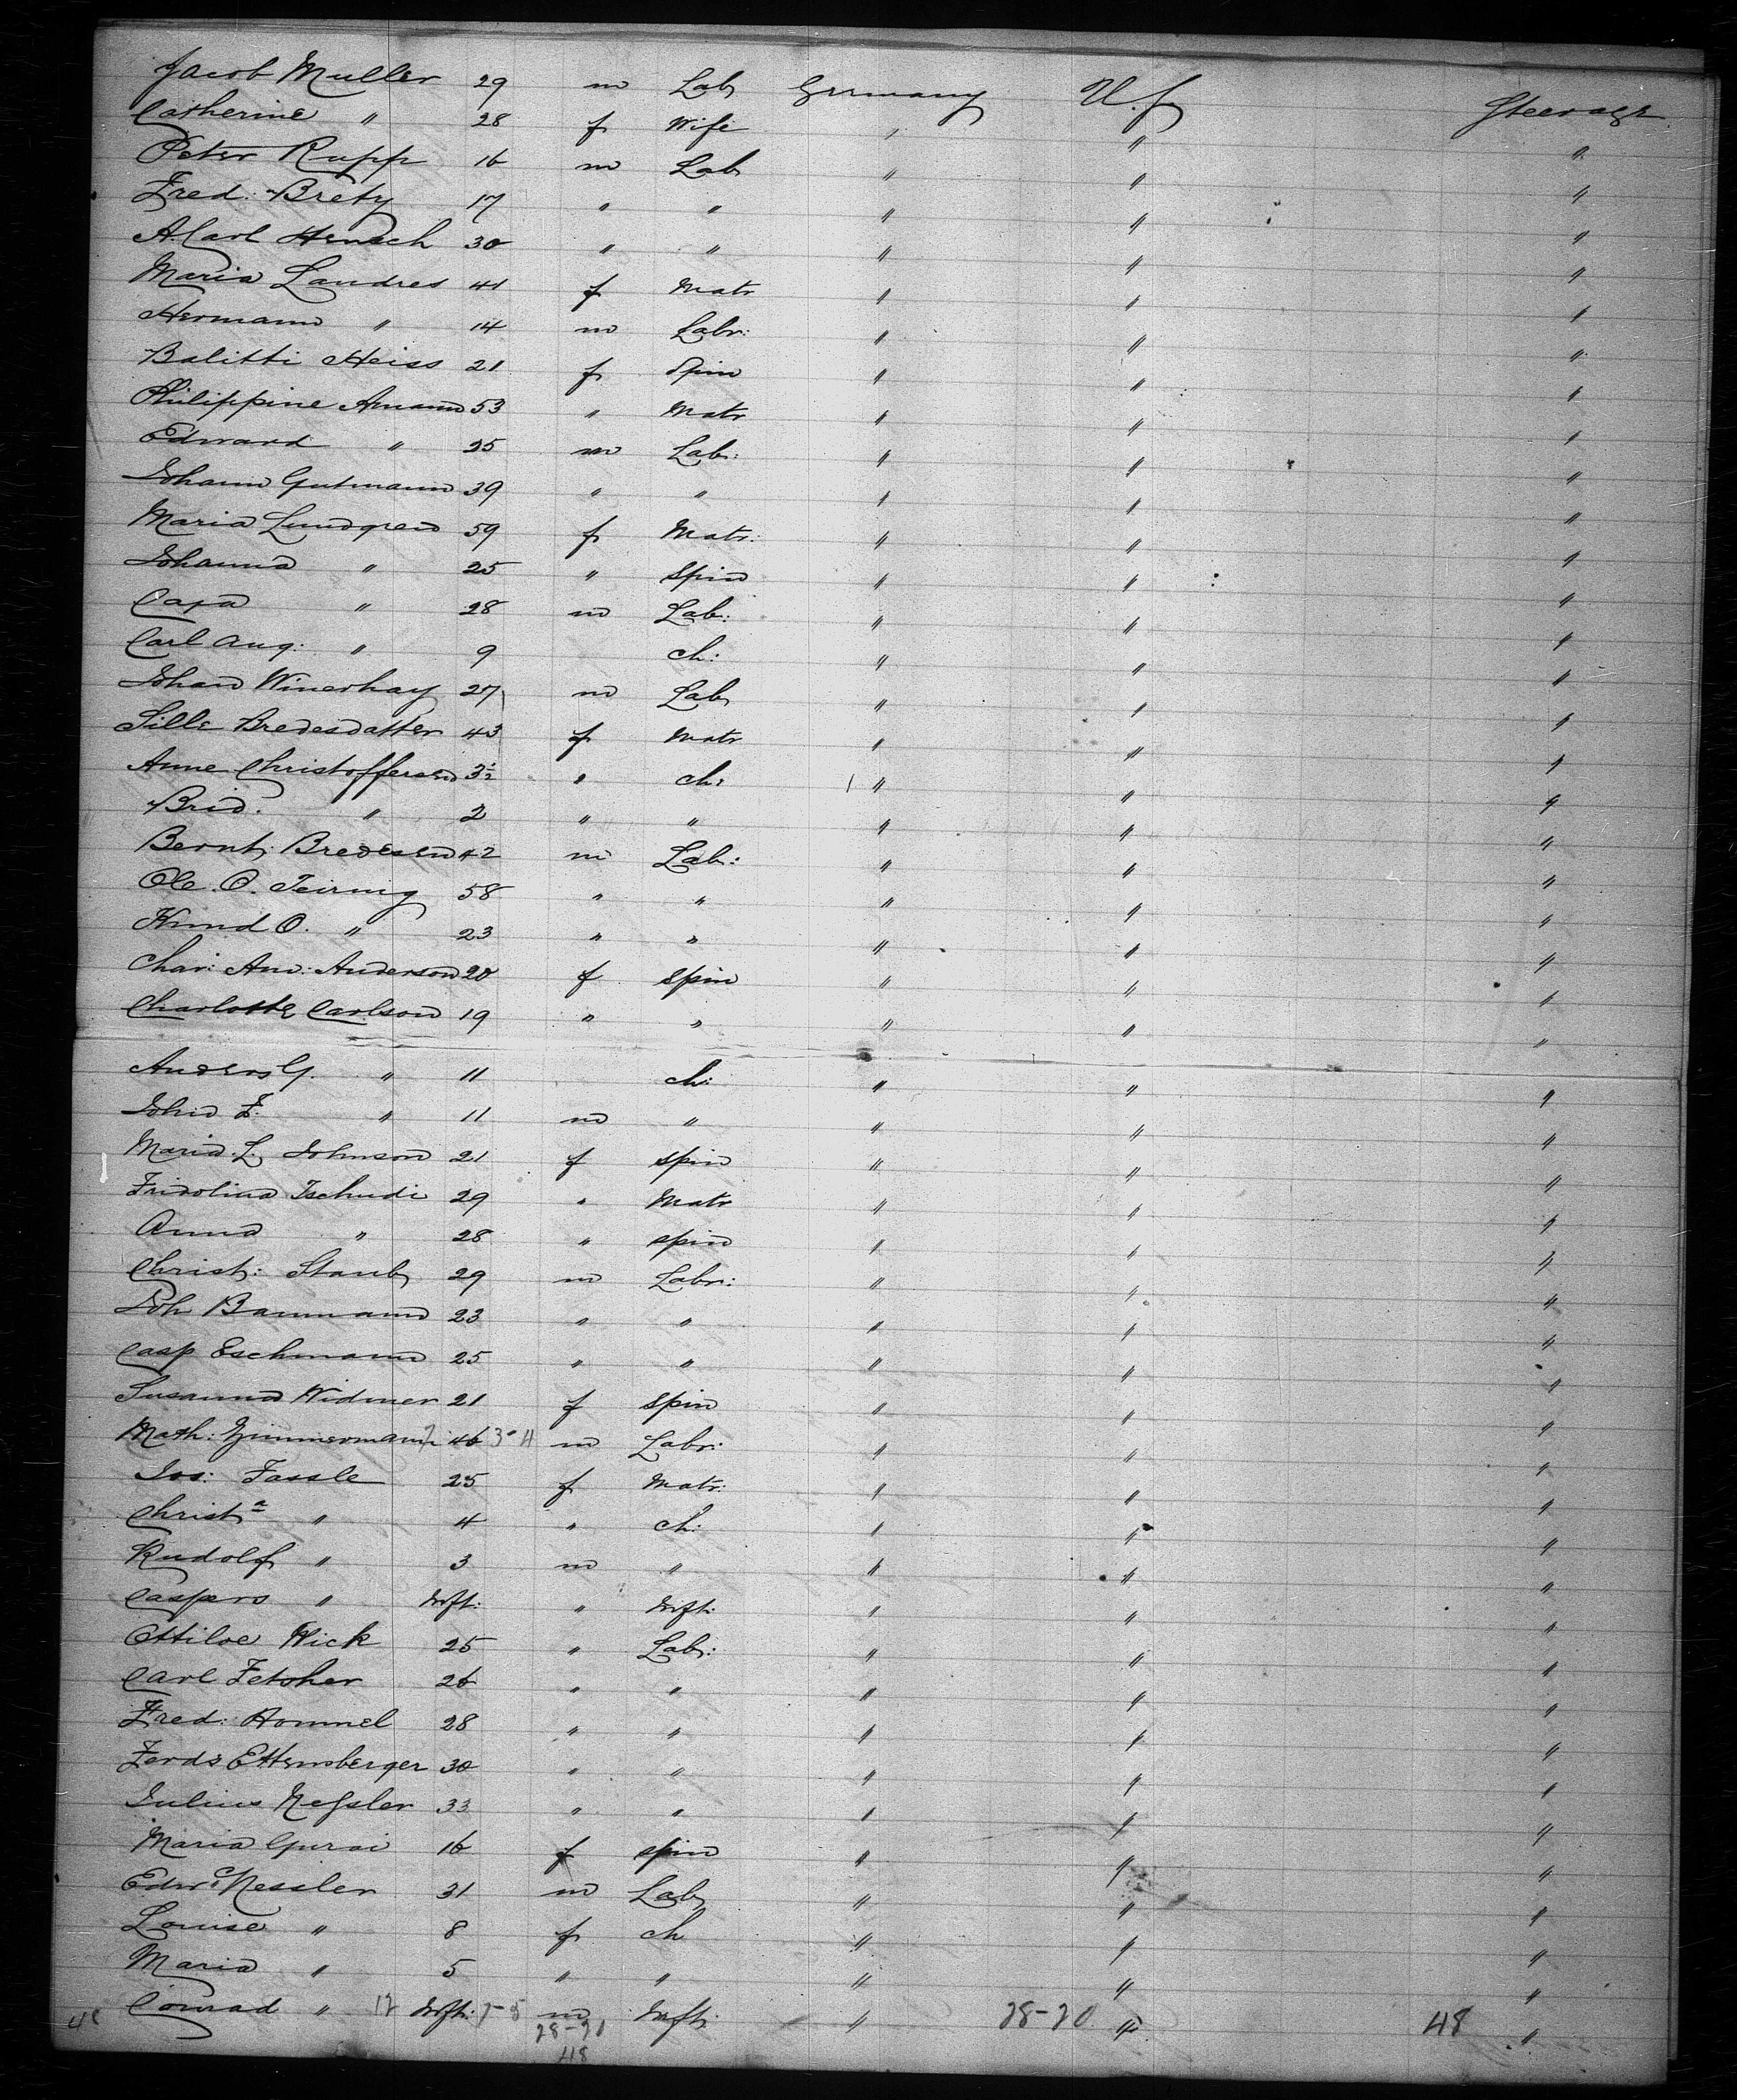 Jacob Muller 29 m Lab Germany U.S Steerage
Catherine " 28 f Wife " " "
Peter Rupp 16 m Lab " " "
Fred: Brety 17 " " " " "
A. Carl Hensch 30 " " " " "
Maria Landres 41 f Matr " " "
Hermann " 14 m Labr: " " "
Balitti Heiss 21 f Spin " " "
Philippine Amann 53 " Matr " " "
Edward " 25 m Lab: " " "
Johann Gutmann 39 " " " " "
Maria Lundgren 59 f Matr: " " "
Johanna " 25 " Spin " " "
Caja " 28 m Lab: " " "
Carl Aug: " 9 ch: " " "
Johan Winerhay 27 m Lab " " "
Sille Bredesdatter 43 f Matr " " "
Anne Christoffersen 3½ " ch: " " "
Brid. " 2 " " " " "
Bernt: Bredesen 42 m Lab: " " "
Ole. O. Teirnig 58 " " " " "
Knud O. " 23 " " " " "
Char: Ann: Anderson 20 f Spin " " "
Charlotte Carlson 19 " " " " "
Anders G. " 11 ch: " " "
John F. " 11 m " " " "
Maria. L. Johnson 21 f Spin " " "
Fridolina Tschudi 29 " Matr " " "
Anna " 28 " spin " " "
Christ: Staub 29 m Labr: " " "
Joh Baumann 23 " " " " "
Casp Eschmann 25 " " " " "
Susanna Widmer 21 f Spin " " "
Math: Zimmermann 46 m Labr: " " "
Jos: Fassle 25 f Matr: " " "
Christa " 4 " ch: " " "
Rudolf " 3 m " " " "
Caspers " Inft: " Inft: " " "
Ottiloe Wick 25 " Lab: " " "
Carl Fetsher 26 " " " " "
Fred: Hommel 28 " " " " "
Ferdd Ettensberger 30 " " " " "
Julius Kessler 33 " " " " "
Maria Gurai 16 f spin " " "
Edwd Kessler 31 m Lab " " "
Louise " 8 f ch " " "
Maria " 5 " " " " "
48 Conrad " 12 Inft: 7-5 m Inft: " 28-20 " 48 "
28-20
48